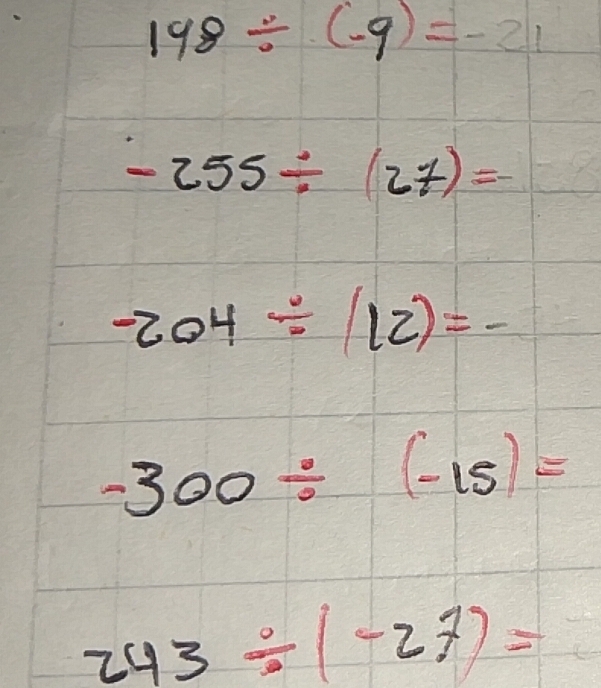 198 ÷ (-9) = -21
-255 ÷ (27) = -
-204 ÷ (12) = -
-300 ÷ (-15) =
243 ÷ (-27) =